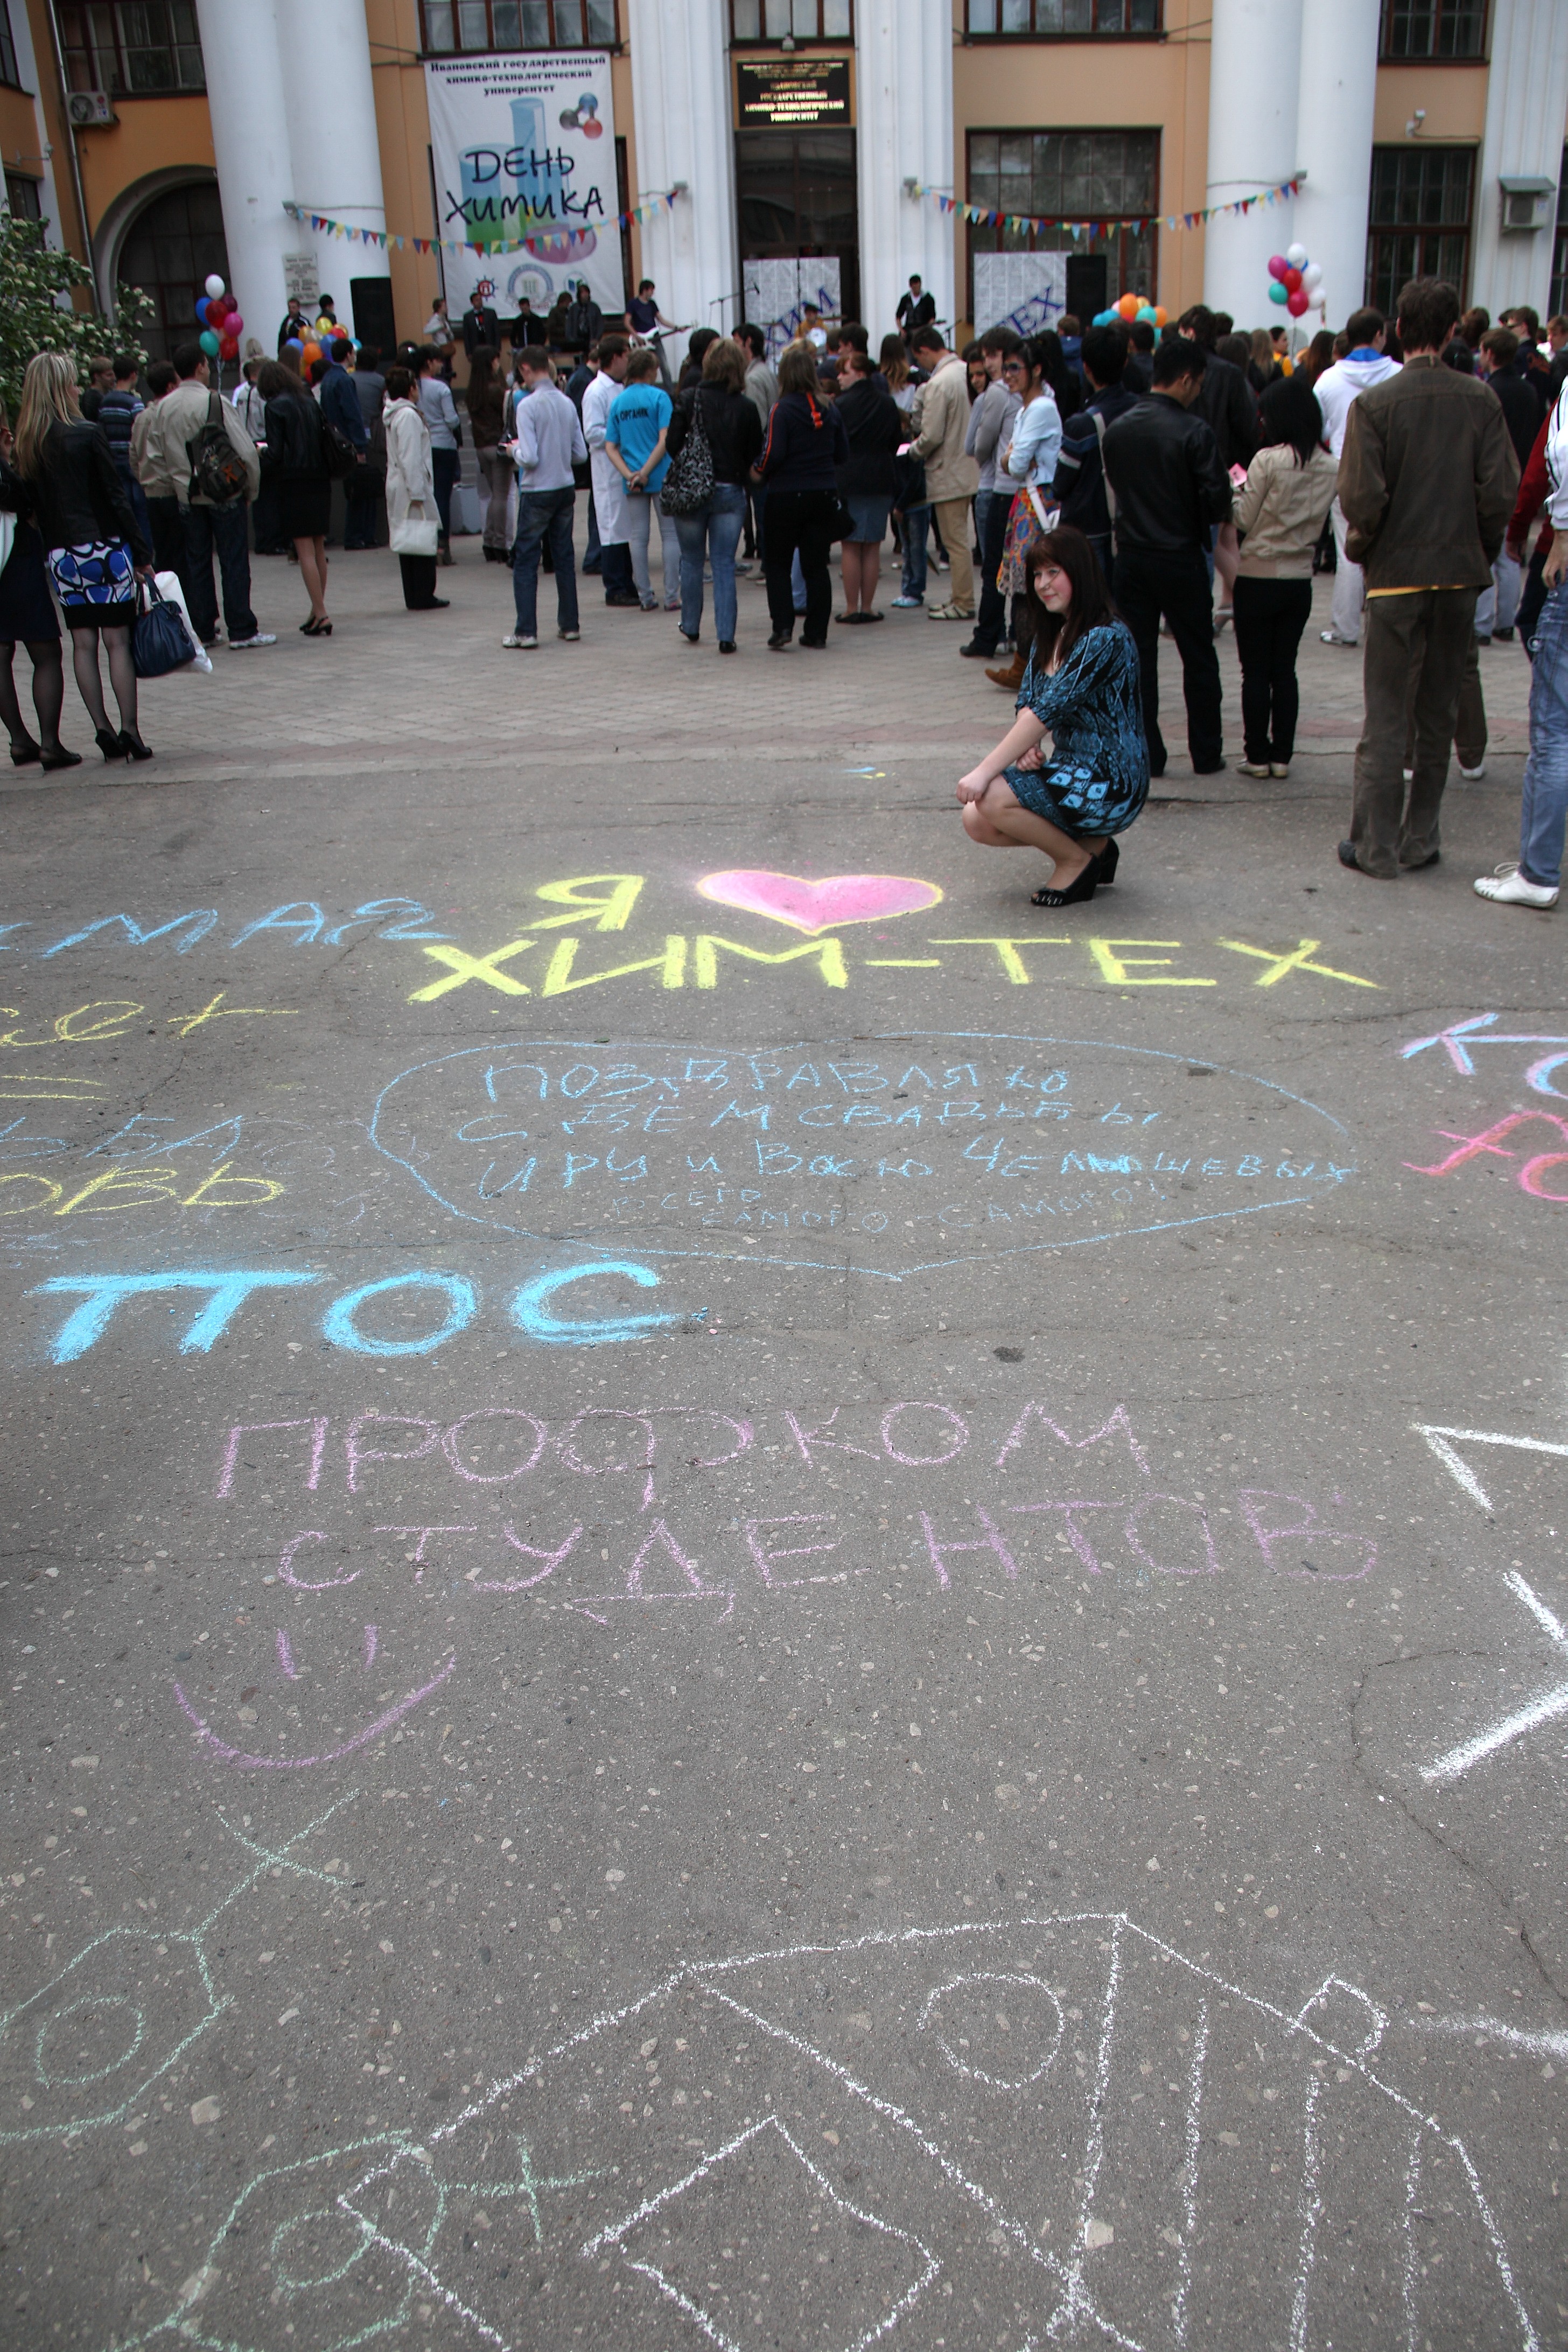 Ивановский государственный
химико-технологический
университет
ДЕНЬ
ХИМИКА
ГОСУДАРСТВЕННЫЙ
ХИМИКО-ТЕХНОЛОГИЧЕСКИЙ
УНИВЕРСИТЕТ
ХИМ
ТЕХ
ОРГАНИК
МАЯ
Я
ХИМ-ТЕХ
ПОЗДРАВЛЯЮ
С ДЕМ СВАДЬБЫ
ИРУ и Васю
ВСЕГО
САМОГО-САМОГО!
ПОС
ПРОФКОМ
СТУДЕНТОВ